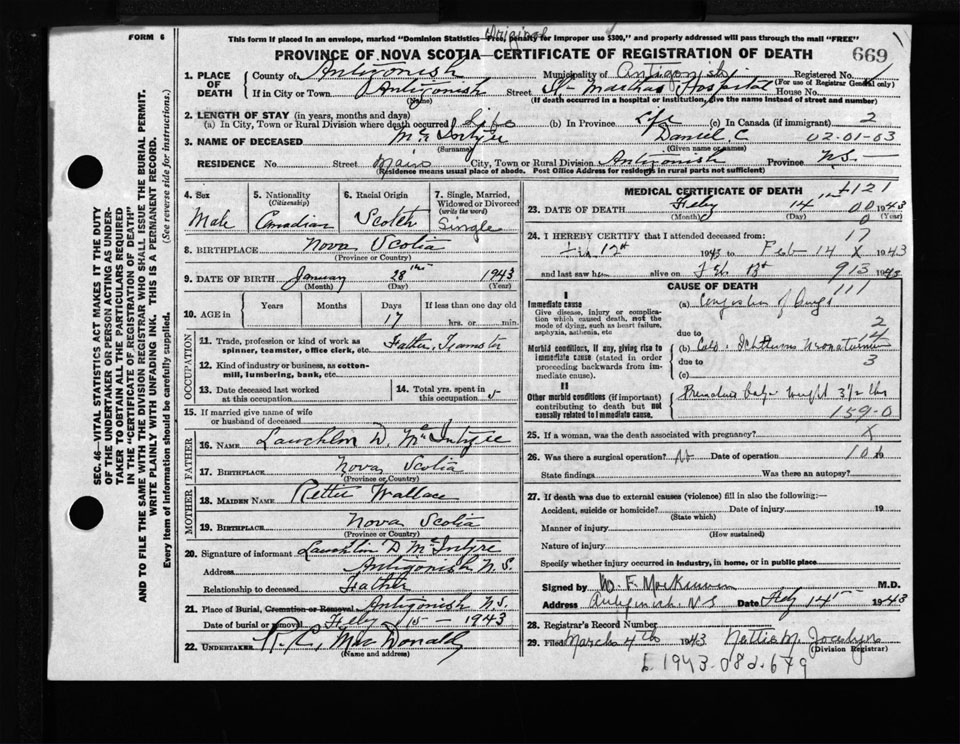 FORM 6
This form if placed in an envelope, marked "Dominion Statistics—Free, penalty for improper use $300," and properly addressed will pass through the mail "FREE"
Original
PROVINCE OF NOVA SCOTIA—CERTIFICATE OF REGISTRATION OF DEATH
669
1. PLACE OF DEATH
County of Antigonish Municipality of Antigonish Registered No.
(For use of Registrar General only)
If in City or Town Antigonish Street St. Marthas Hospital House No.
(Name) (If death occurred in a hospital or institution, give the name instead of street and number)
2. LENGTH OF STAY (in years, months and days)
(a) In City, Town or Rural Division where death occurred Life (b) In Province Life (c) In Canada (if immigrant) 2
3. NAME OF DECEASED McIntyre Daniel C. 02-01-03
(Surname) (Given name or names)
RESIDENCE No. Street Main City, Town or Rural Division Antigonish Province N.S.
(Residence means usual place of abode. Post Office Address for residents in rural parts not sufficient)
4. Sex Male
5. Nationality (Citizenship) Canadian
6. Racial Origin Scotch
7. Single, Married, Widowed or Divorced (write the word) Single
8. BIRTHPLACE Nova Scotia
(Province or Country)
9. DATE OF BIRTH January 28th 1943
(Month) (Day) (Year)
10. AGE in Years Months Days 17 If less than one day old hrs. or min.
OCCUPATION
11. Trade, profession or kind of work as spinner, teamster, office clerk, etc. Father, Teamster
12. Kind of industry or business, as cotton-mill, lumbering, bank, etc.
13. Date deceased last worked at this occupation
14. Total yrs. spent in this occupation
15. If married give name of wife or husband of deceased
FATHER
16. NAME Lauchlin D. McIntyre
17. BIRTHPLACE Nova Scotia
(Province or Country)
MOTHER
18. MAIDEN NAME Rettie Wallace
19. BIRTHPLACE Nova Scotia
(Province or Country)
20. Signature of informant Lauchlin D McIntyre
Address Antigonish N.S.
Relationship to deceased Father
21. Place of Burial, Cremation or Removal Antigonish N.S.
Date of burial or removal Feby 15 - 1943
22. UNDERTAKER MacDonald
(Name and address)
MEDICAL CERTIFICATE OF DEATH
+121
23. DATE OF DEATH Feby 14th 1943
(Month) (Day) (Year)
24. I HEREBY CERTIFY that I attended deceased from: 17
12th 1943 to Feb 14 X 1943
and last saw him alive on Feb 13th 913 1943
CAUSE OF DEATH
I
Immediate cause
Give disease, injury or complication which caused death, not the mode of dying, such as heart failure, asphyxia, asthenia, etc
(a) Congestion of lungs 111
due to 2
Morbid conditions, if any, giving rise to immediate cause (stated in order proceeding backwards from immediate cause).
(b) Cold. Ichterus Neonatorum
due to 3
(c)
II
Other morbid conditions (if important) contributing to death but not causally related to immediate cause.
Premature baby weight 3 1/2 lbs
159-0
25. If a woman, was the death associated with pregnancy? X
26. Was there a surgical operation? No Date of operation
State findings Was there an autopsy?
27. If death was due to external causes (violence) fill in also the following:—
Accident, suicide or homicide? Date of injury 19
(State which)
Manner of injury
(How sustained)
Nature of injury
Specify whether injury occurred in industry, in home, or in public place
Signed by W. F. MacKinnon M.D.
Address Antigonish. N.S Date Feby 14th 1943
28. Registrar's Record Number
29. Filed March 4th 1943 Nellie M. Jocelyn
(Division Registrar)
1943-082-679
SEC. 46—VITAL STATISTICS ACT MAKES IT THE DUTY
OF THE UNDERTAKER OR PERSON ACTING AS UNDER-
TAKER TO OBTAIN ALL THE PARTICULARS REQUIRED
IN THE "CERTIFICATE OF REGISTRATION OF DEATH"
AND TO FILE THE SAME WITH THE DIVISION REGISTRAR WHO SHALL ISSUE THE BURIAL PERMIT.
WRITE PLAINLY, WITH UNFADING INK. THIS IS A PERMANENT RECORD.
Every item of Information should be carefully supplied. (See reverse side for instructions.)